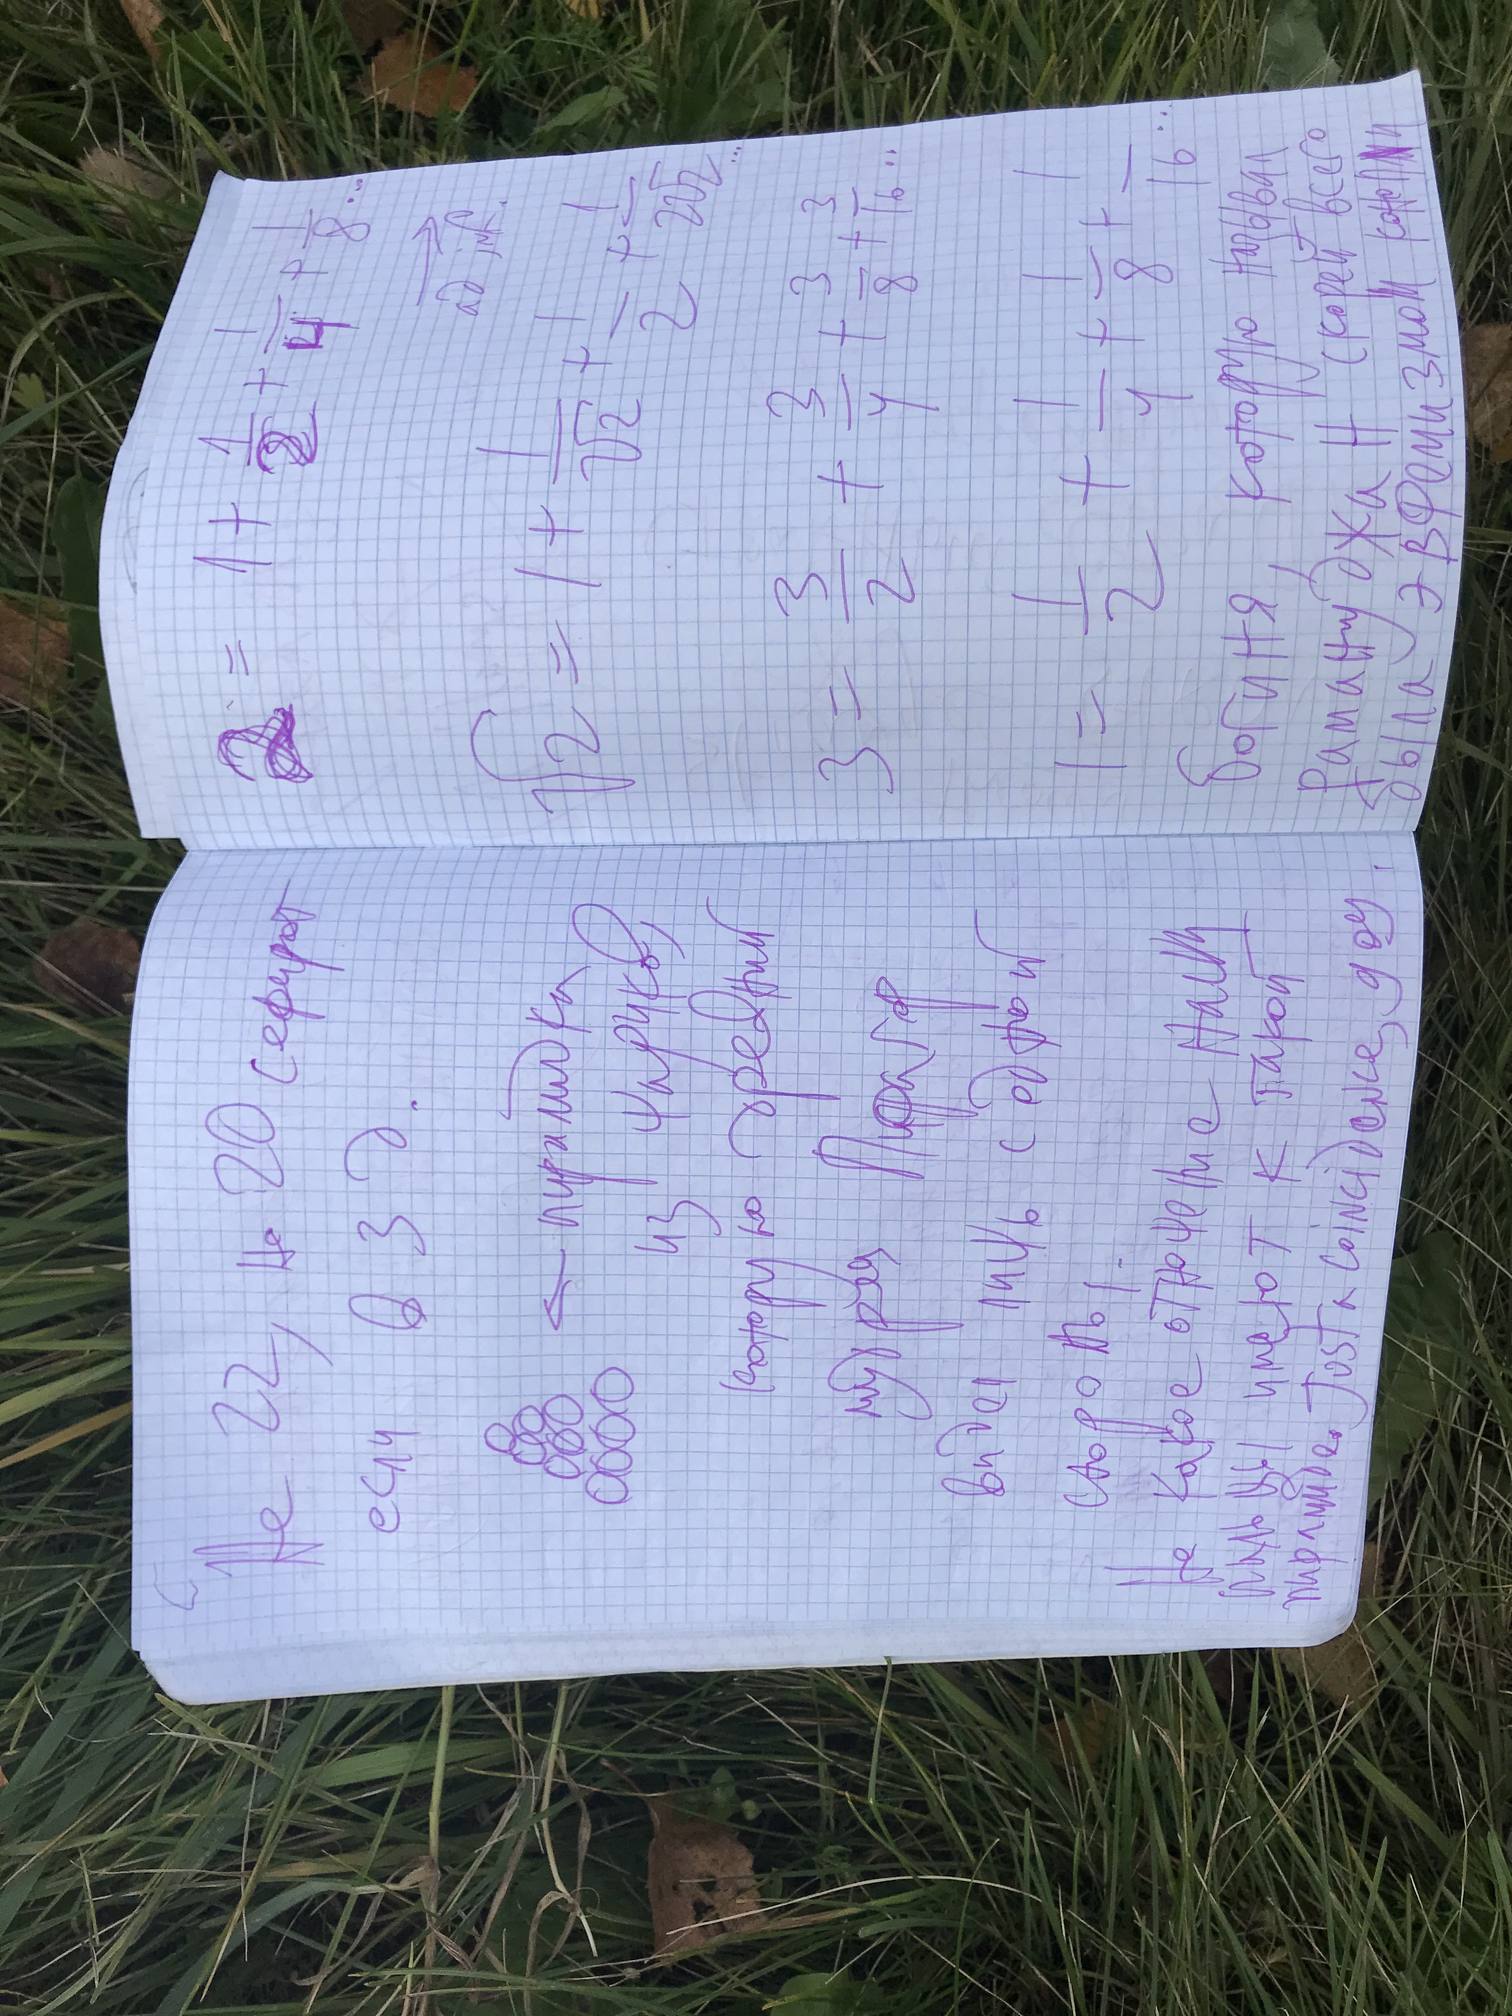 Не 22, не 20 сефирот
если в 3 д.
← пирамидка
из шариков,
которую древний
мудрец Пифагор
видел лишь с одной
стороны.
Не какое отношение наши
пальцы имеют к такой
пирамиде. Just a coincidence, у оу.
2 = 1 + 1/2 + 1/4 + 1/8 ...
ad inf.
√2 = 1 + 1/√2 + 1/2 + 1/2√2 ...
3 = 3/2 + 3/4 + 3/8 + 3/16 ...
1 = 1/2 + 1/4 + 1/8 + 1/16 ...
богиня, которую назвал
Рамануджан скорей всего
была эвфемизмом